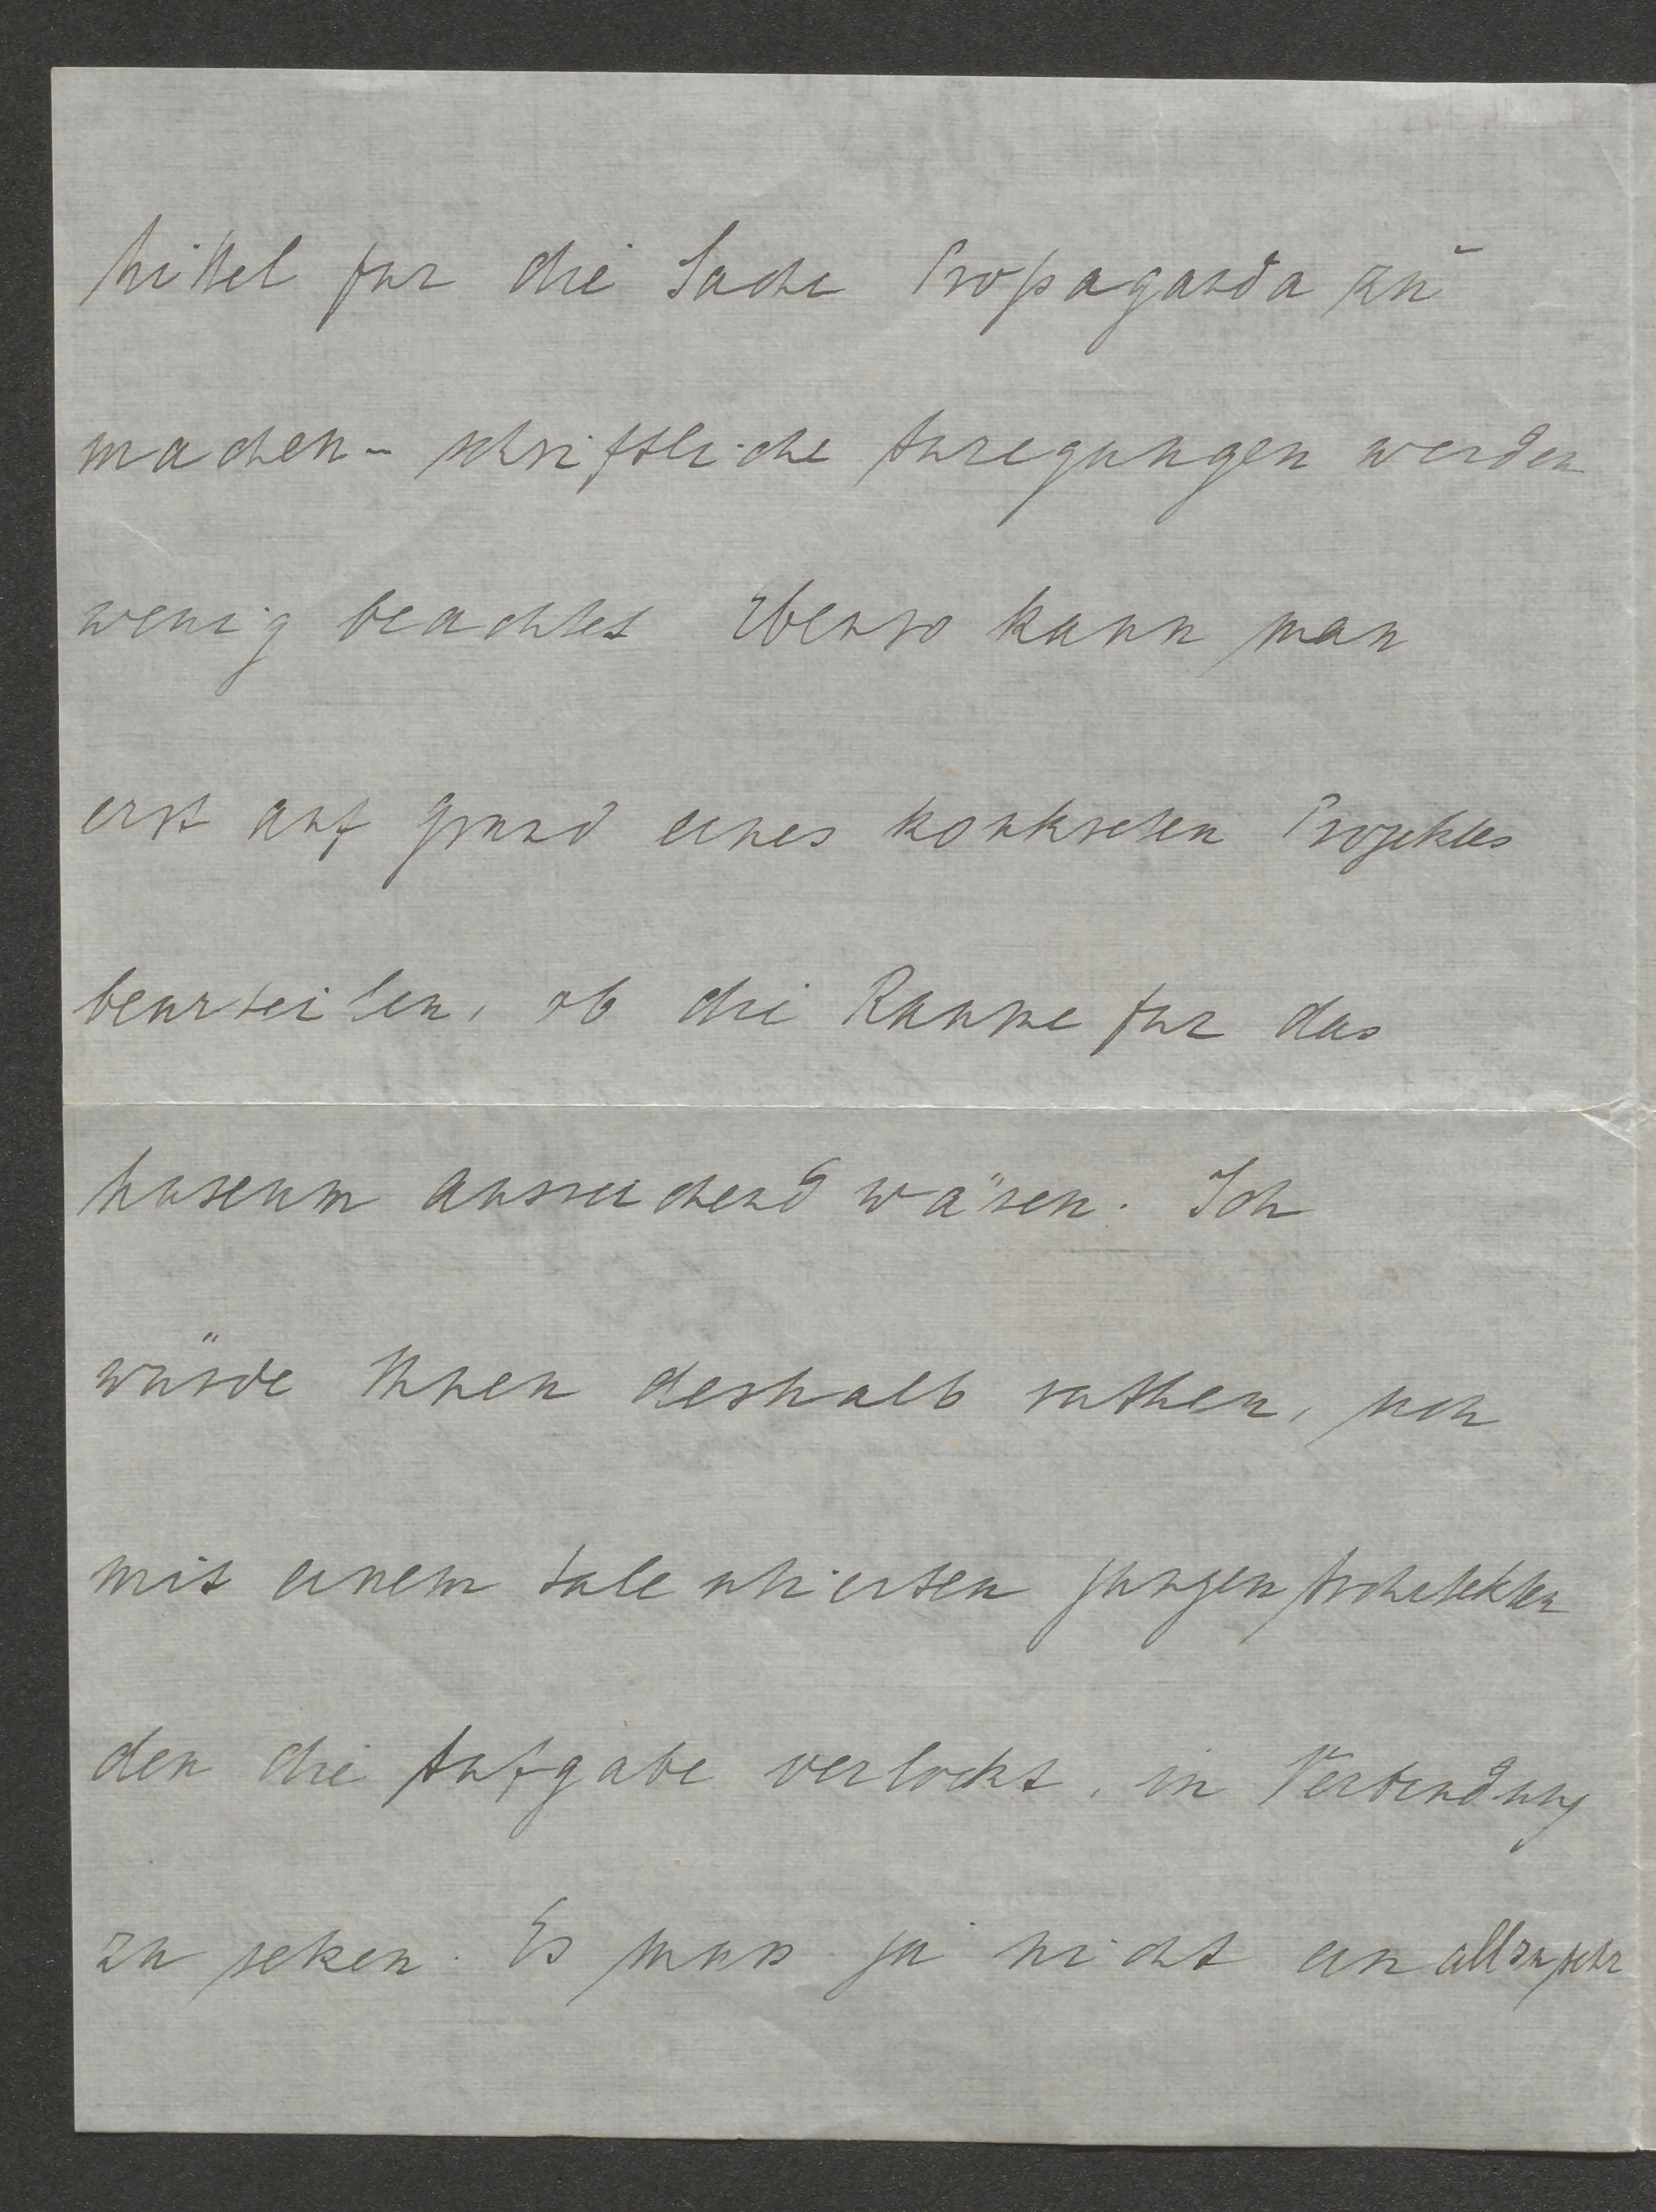 Mittel fur die Sache Propaganda zu
machen - schriftliche Anregungen werden
wenig beachtet Ebenso kann man
erst auf Grund eines konkreten Projektes
beurteilen, ob die Raume fur das
Museum ausreichend wären. Ich
würde Ihnen deshalb rathen, sich
mit einem talentierten jungen Architekten
den die Aufgabe verlockt, in Verbindung
zu setzen. Es muss ja nicht ein allzu sehr